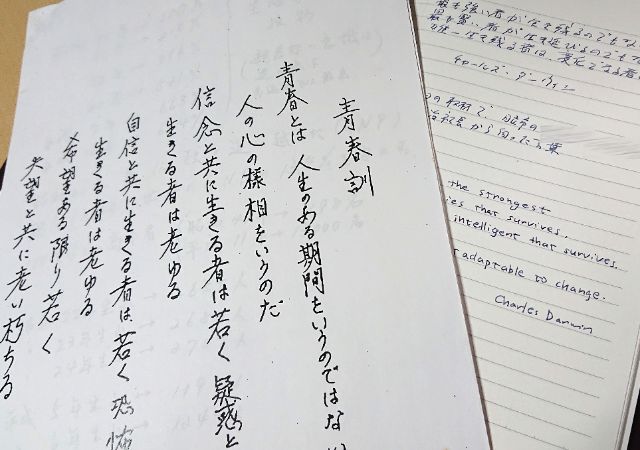 青春訓
青春とは 人生のある期間をいうのではない
人の心の様相をいうのだ
信念と共に生きる者は若く 疑惑と
生きる者は老ゆる
自信と共に生きる者は若く 恐怖
生きる者は老ゆる
希望ある限り若く
失望と共に老い朽ちる
最も強い者が生き残るのでもな
最も賢い者が生き延びるのでもな
唯一生き残る者は、変化できる者
チャールズ・ダーウィン
the strongest
ies that survives.
intelligent that survives.
adaptable to change.
Charles Darwin